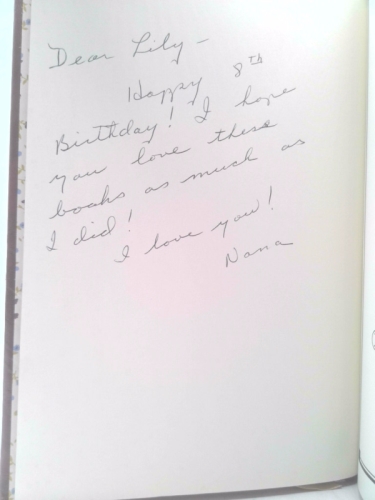 Dear Lily –
Happy 8th
Birthday! I hope
you love these
books as much as
I did!
I love you!
Nana